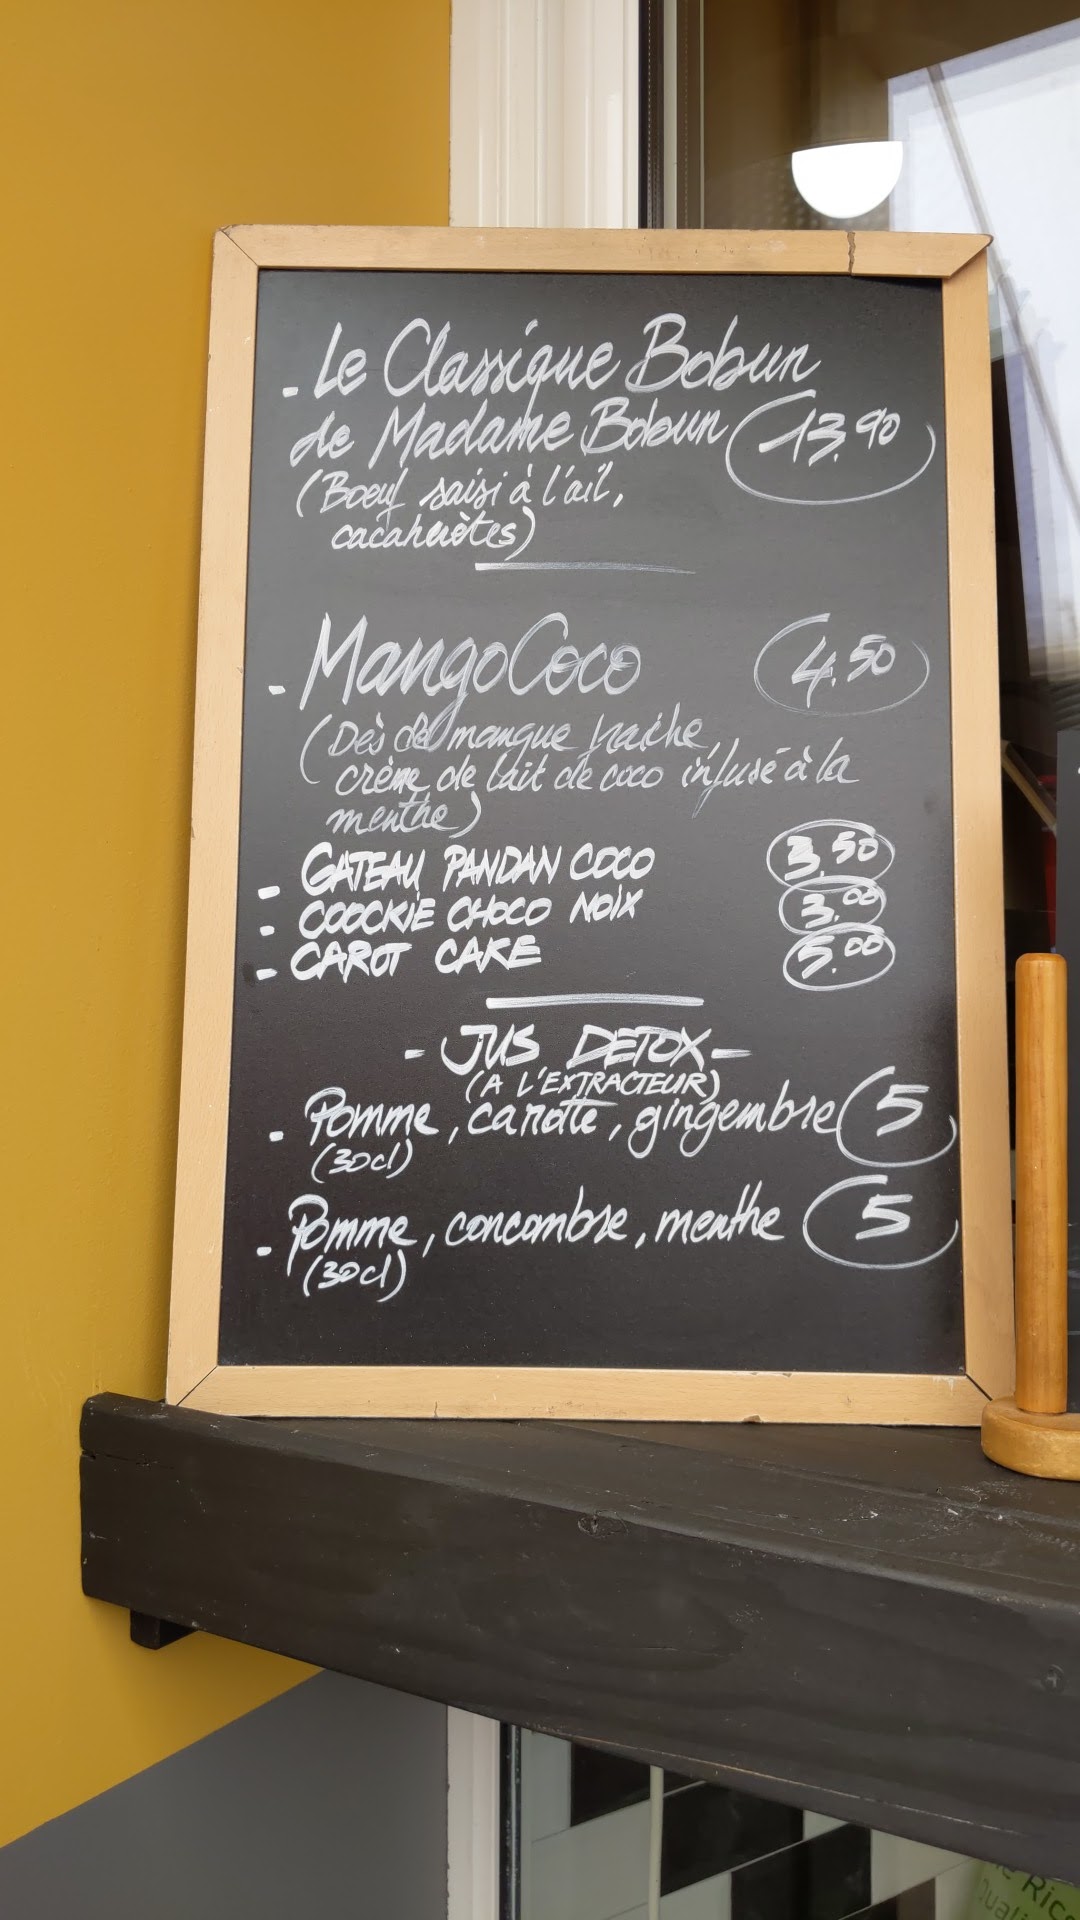 - Le Classique Bobun
de Madame Bobun 13,90
(Boeuf saisi à l'ail,
cacahuètes)
- MangoCoco 4,50
(Dès de mangue fraiche,
crème de lait de coco infusé à la
menthe)
- GATEAU PANDAN COCO 3,50
- COOCKIE CHOCO NOIX 3,00
- CAROT CAKE 5,00
- JUS DETOX -
(A L'EXTRACTEUR)
- Pomme, carotte, gingembre 5
(30cl)
- Pomme, concombre, menthe 5
(30cl)
Rice